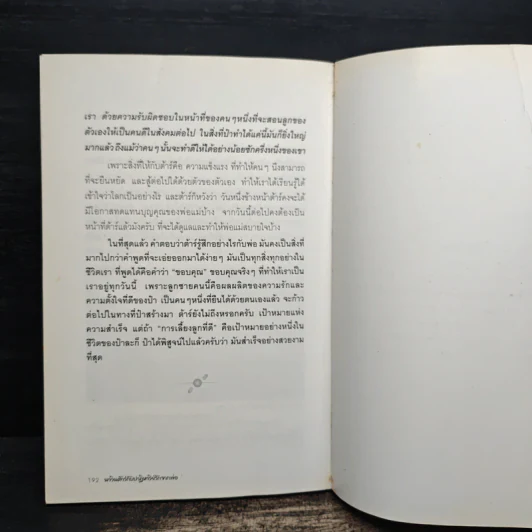 เรา ด้วยความรับผิดชอบในหน้าที่ของคนๆหนึ่งที่จะสอนลูกของ
ตัวเองให้เป็นคนดีในสังคมต่อไป ในสิ่งที่ป๋าทำได้แค่นี้มันก็ยิ่งใหญ่
มากแล้ว ถึงแม้ว่าคนๆนั้นจะทำดีให้ได้อย่างน้อยซักครึ่งหนึ่งของเขา
เพราะสิ่งที่ให้กับต้าร์คือ ความแข็งแรง ที่ทำให้คนๆ นึงสามารถ
ที่จะยืนหยัด และสู้ต่อไปได้ด้วยตัวของตัวเอง ทำให้เราได้เรียนรู้ได้
เข้าใจว่าโลกเป็นอย่างไร และต้าร์ก็หวังว่า วันหนึ่งข้างหน้าต้าร์คงจะได้
มีโอกาสทดแทนบุญคุณของพ่อแม่บ้าง จากวันนี้ต่อไปคงต้องเป็น
หน้าที่ต้าร์แล้วมังครับ ที่จะได้ดูแลและทำให้พ่อแม่สบายใจบ้าง
ในที่สุดแล้ว คำตอบว่าต้าร์รู้สึกอย่างไรกับพ่อ มันคงเป็นสิ่งที่
มากไปกว่าคำพูดที่จะเอ่ยออกมาได้ง่ายๆ มันเป็นทุกสิ่งทุกอย่างใน
ชีวิตเรา ที่พูดได้คือคำว่า “ขอบคุณ” ขอบคุณจริงๆ ที่ทำให้เราเป็น
เราอยู่ทุกวันนี้ เพราะลูกชายคนนี้คือผลผลิตของความรักและ
ความตั้งใจที่ดีของป๋า เป็นคนๆหนึ่งที่ยืนได้ด้วยตนเองแล้ว จะก้าว
ต่อไปในทางที่ป๋าสร้างมา ต้าร์ยังไม่ถึงหรอกครับ เป้าหมายแห่ง
ความสำเร็จ แต่ถ้า “การเลี้ยงลูกที่ดี” คือเป้าหมายอย่างหนึ่งใน
ชีวิตของป๋าละก็ ป๋าได้พิสูจน์ไปแล้วครับว่า มันสำเร็จอย่างสวยงาม
ที่สุด
192